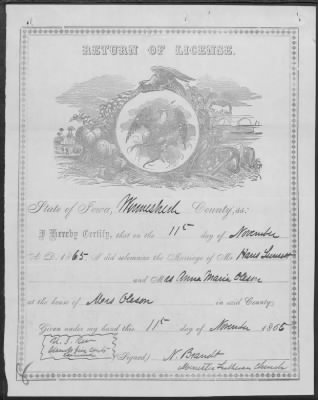 RETURN OF LICENSE.
State of Iowa, Winneshiek County, ss:
I Hereby Certify, that on the 11th day of November
A. D. 1865 I did solemnize the Marriage of Mr Hans
and Miss Anna Maria Oleson
at the house of Oleson in said County;
Given under my hand this 11th day of November 1865
(Signed) N. Brandt
Minister Lutheran Church